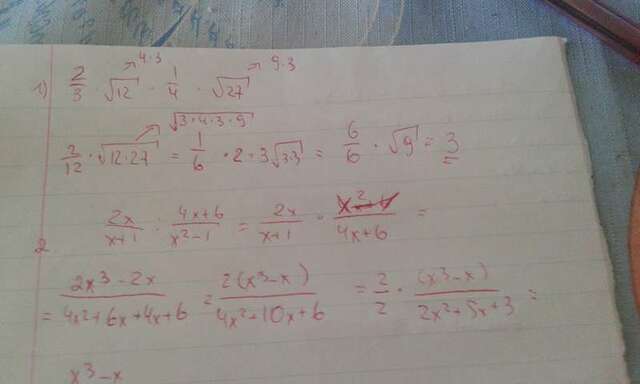 4·3 9·3
1) 2/3 · √12 · 1/4 · √27
√3·4·3·9
2/12 · √12·27 = 1/6 · 2·3√3·3 = 6/6 · √9 = 3
2. 2x/x+1 : 4x+6/x²-1 = 2x/x+1 · x²-1/4x+6 =
= 2x³-2x/4x²+6x+4x+6 = 2(x³-x)/4x²+10x+6 = 2/2 · (x³-x)/2x²+5x+3 =
x³-x